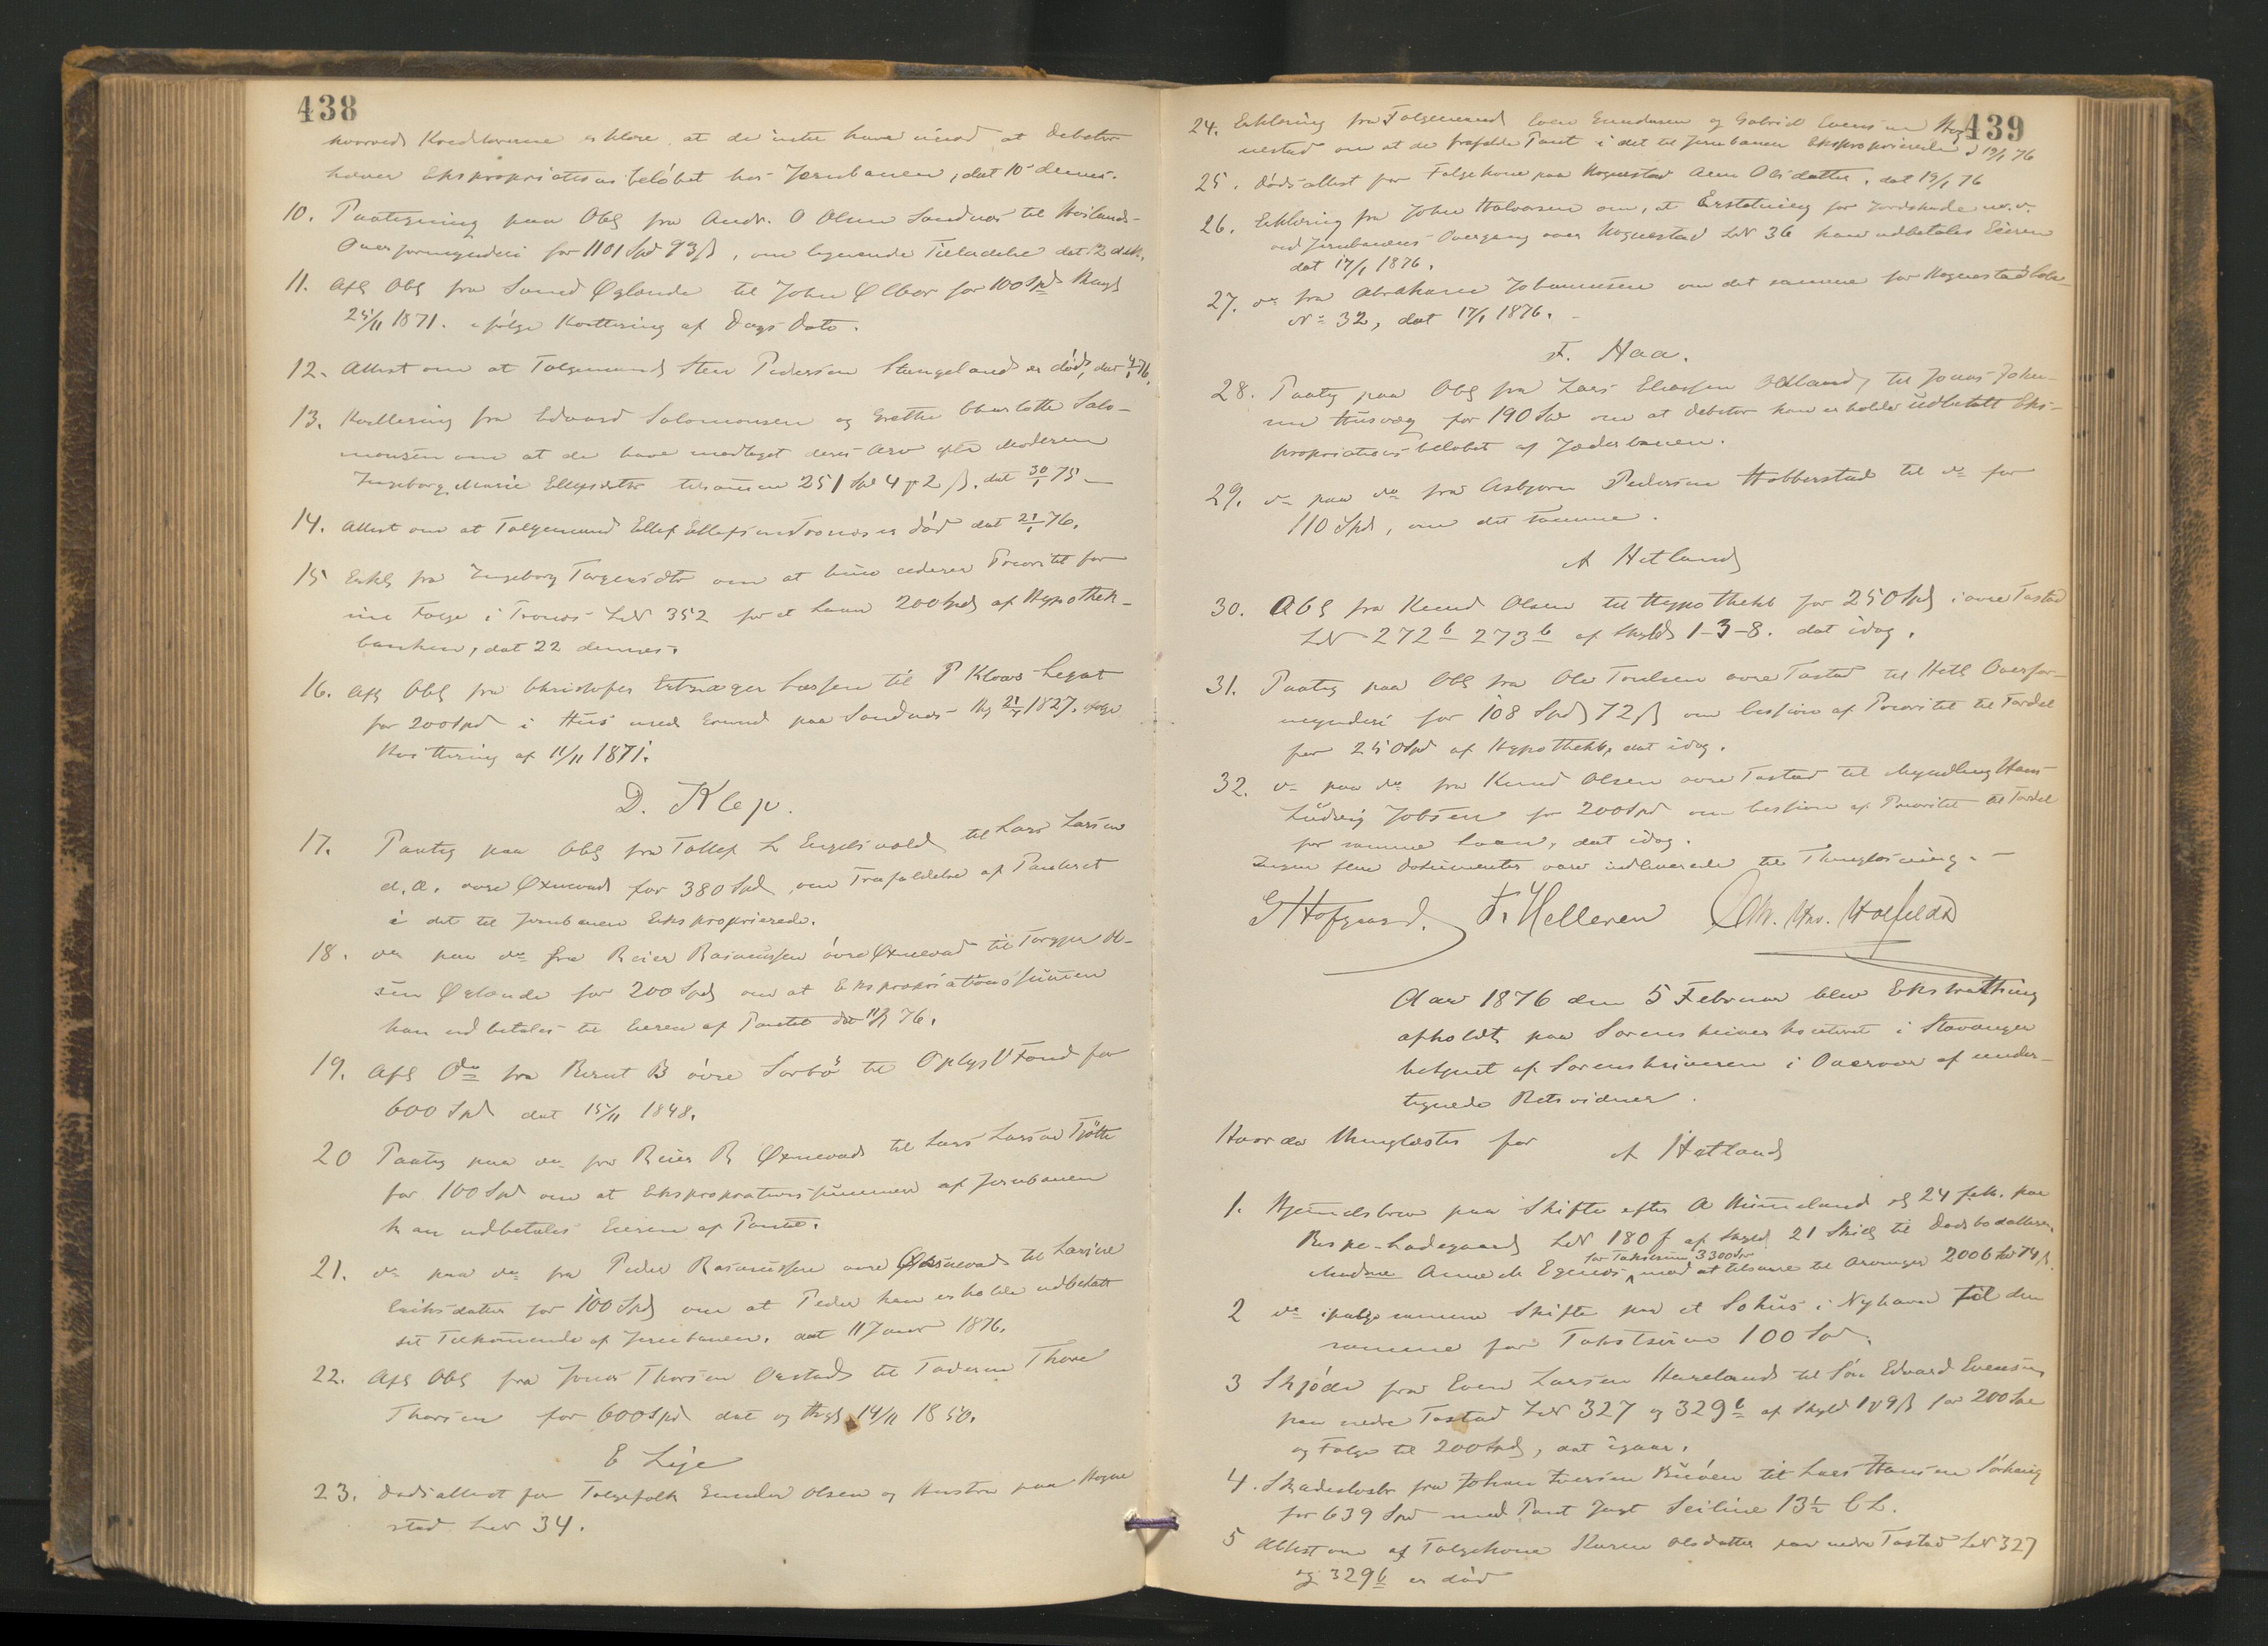 438
hvorved Kreditorerne erklære, at de intet have imod at Debitor
hæver Ekspropriationsbeløbet hos Jernbanen, dat 10 dennes.
10. Paategning paa Obl fra Andr. O Olsen Sandnæs til Høilands-
Overformynderi for 1101 Spd 93 ß, om lignende Tilladelse dat 12 ds.
11. Afl Obl fra Svend Øglænde til John Ølbør for 100 Spd thingl
25/11 1871. ifølge Kvittering af Dags Dato.
12. Attest om at Folgemand Sten Pedersen Stangeland er død, dat 4/1 76.
13. Kvittering fra Edvard Salomonsen og Grethe Charlotte Salo-
monsen om at de have modtaget deres Arv efter Moderen
Ingeborg Marie Ellefsdtr tilsammen 251 Spd 4 ƴ 2 ß. dat 30/1 75 —
14. Attest om at Folgemand Ellef Ellefsen Tronæs er død dat 21/1 76.
15 Erkl fra Ingeborg Torgersdtr om at hun cederer Prioritet for
sin Folge i Tronæs LN 352 for et Laan 200 Spd af Hypothek-
banken, dat 22 dennes.
16. Afl Obl fra Christofer Larsen til P Kloves Legat
for 200 Spd i Hus med Grund paa Sandnæs 21/5 1827. ifølge
Kvittering af 11/11 1871.
D. Klep.
17. Paateg paa Obl fra Tollef L Engelsvold til Lars Larsen
d.æ. øvre Øxnevad for 380 Spd om Frafaldelse af Panteret
i det til Jernbanen Eksproprierede.
18. do paa do fra Reier Rasmussen øvre Øxnevad til Torger O-
sen Øglænde for 200 Spd om at Ekspropriationssummen
kan udbetales til Eieren af Pantet dat 11/1 76.
19. Afl Do fra Bernt B øvre Sørbø til Oplysn Fond for
600 Spd dat 15/11 1848.
20 Paateg paa do fra Reier R Øxnevad til Lars Larsen Tjøtte
for 100 Spd om at Ekspropriationssummen af Jernbanen
kan udbetales Eieren af Pantet.
21. do paa do fra Peder Rasmussen øvre Øksnevad til Larine
Eriksdatter for 100 Spd om at Peder kan erholde udbetalt
sit Tilkommende af Jernbanen. dat 11 Januar 1876.
22. Afl Obl fra Jonas Thorsen Orstad til Faderen Thore
Thorsen for 600 Spd dat og thgl 14/11 1850.
E Lye
23. Dødsattest for Folgefolk Gunder Olsen og Hustru paa Hogne
stad LN 34.
439
24. Erklæring fra Folgemand Even Gundersen og Gabriel Evensen Hog
nestad om at de frafalde Pant i det til Jernbanen Eksproprierede d 19/1 76
25. Dødsattest for Folgekone paa Hognestad Olsdatter. dat 19/1 76
26. Erklæring fra John Halvorsen om, at Erstatning for Jordskade m.v.
ved Jernbanens Overgang over Hognestad LN 36 kan udbetales Eieren
dat 17/1 1876.
27. do fra Abraham Johannesen om det samme for Hognestad Løbe
No 32, dat 17/1 1876.
F. Haa.
28. Paateg paa Obl fra Lars Eliassen til Jonas John-
sen Husvæg for 190 Spd om at Debitor kan erholde udbetalt Eks-
propriationsbeløbet af Jæderbanen.
29. do paa do fra Asbjørn Pedersen Hobberstad til do for
110 Spd, om det samme.
A Hetland
30. Obl fra Knud Olsen til Hypothekb for 250 Spd i øvre Tasted
LN 272b 273b af Skyld 1-3-8. dat idag.
31. Paateg paa Obl fra Ole øvre Tasted til Hetl Overfor-
mynderi for 108 Spd 72 ß om Cession af Prioritet til Fordel
for 250 Spd af Hypothekb, dat idag.
32. do paa do fra Knud Olsen øvre Tasted til Myndling Hans
Ludvig Jobsen for 200 Spd om Cession af Prioritet til Fordel
for samme Laan, dat idag.
Ingen flere Dokumenter vare indleverede til Thinglæsning. —
G Hofgaard. F. Helleren Chr. Holfeldt
Aar 1876 den 5 Februar blev Ekstrathing
afholdt paa Sorenskriverkontoret i Stavanger
betjent af Sorenskriveren i Overvær af under-
tegnede Retsvidner.
Hvor da thinglæstes for
A Hetland
1. Hjemmelsbrev paa Skifte efter A af 24 f.M. paa
Ladegaard LN 180 f af Skyld 21 Skill til Dødsbodatteren,
for Takstsum 3300 Spd
Madme Anne M Egenæs, mod at tilsvare til Arvinger 2006 Spd 74 ß.
2 do ifølge samme Skifte paa et Søhus i Nyhavn til den
samme for Takstsum 100 Spd.
3 Skjøde fra Even Larsen Hareland til Søn Edvard Evensen
paa nedre Tasted LN 327 og 329b af Skyld 1 ƴ 9 ß for 200 Spd
og Folge til 200 Spd, dat igaar.
4. Skadesløsbr fra Johan Iversen til Lars Hansen Sørhaug
for 639 Spd med Pant Jagt Seiline 13½ CL.
5 Attest om at Folgekone Karen Olsdatter paa nedre Tasted LN 327
og 329b er død